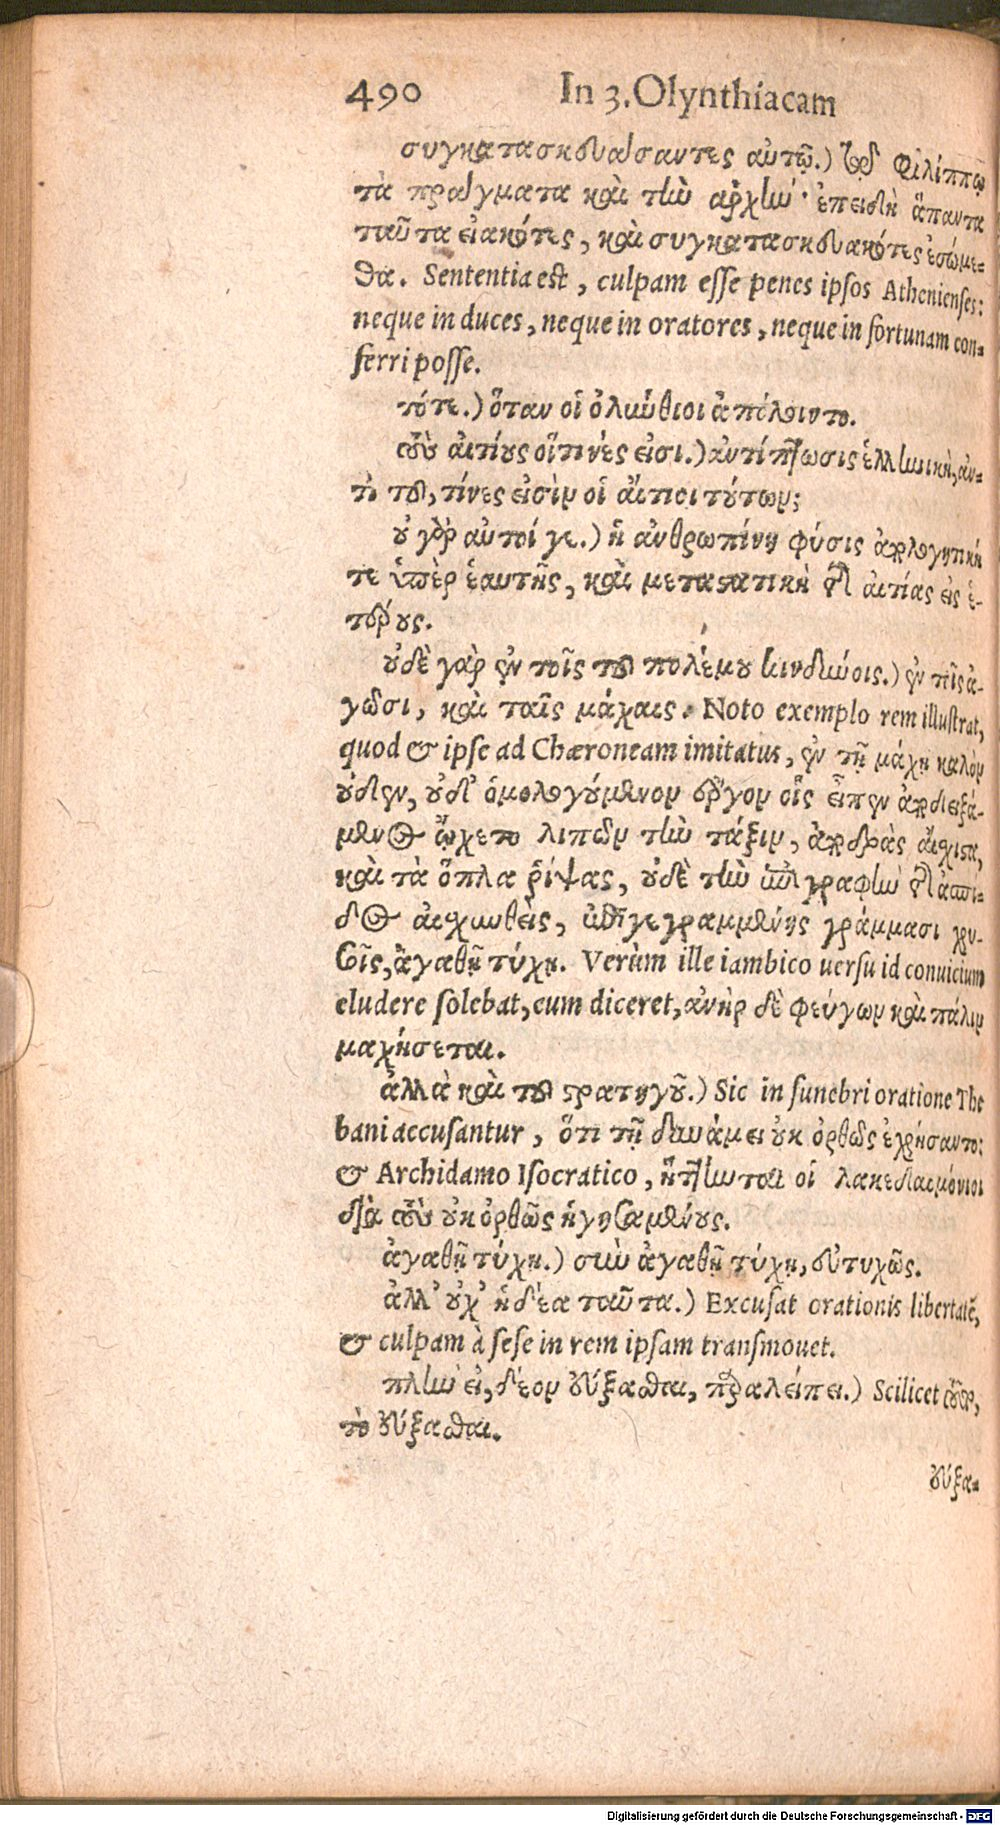 490 In 3. Olynthiacam
συγκατασκευάσαντες αὐτῷ.) τῷ Φιλίππῳ
τὰ πράγματα καὶ τὴν ἀρχήν· ἐπειδὴ ἅπαντα
ταῦτα εἰακότες, καὶ συγκατασκευακότες ἐσώμε-
θα. Sententia est, culpam esse penes ipsos Athenienses:
neque in duces, neque in oratores, neque in fortunam con-
ferri posse.
τότε.) ὅταν οἱ ὀλύνθιοι ἀπόλοιντο.
τοὺς αἰτίους οἵτινές εἰσι.) ἀντίπτωσις ἑλληνικὴ, ἀν-
τὶ τοῦ, τίνες εἰσὶν οἱ αἴτιοι τούτων;
οὐ γὰρ αὐτοί γε.) ἡ ἀνθρωπίνη φύσις ἀπολογητικὴ
τε ὑπὲρ ἑαυτῆς, καὶ μεταστατικὴ τῆς αἰτίας εἰς ἑ-
τέρους.
οὐδὲ γὰρ ἐν τοῖς τοῦ πολέμου κινδύνοις.) ἐν τοῖς ἀ-
γῶσι, καὶ ταῖς μάχαις. Noto exemplo rem illustrat,
quod & ipse ad Chæroneam imitatus, ἐν τῇ μάχῃ καλὸν
οὐδὲν, οὐδ' ὁμολογούμενον ἔργον οἷς εἶπεν ἀποδειξά-
μενος ᾤχετο λιπὼν τὴν τάξιν, ἀποδρὰς αἴσχιστα,
καὶ τὰ ὅπλα ῥίψας, οὐδὲ τὴν ἐπιγραφὴν τῆς ἀσπί-
δος αἰσχυνθεὶς, ἐπιγεγραμμένης γράμμασι χρυ-
σοῖς, ἀγαθῇ τύχῃ. Verùm ille iambico uersu id conuicium
eludere solebat, cum diceret, ἀνὴρ δὲ φεύγων καὶ πάλιν
μαχήσεται.
ἀλλὰ καὶ τοῦ στρατηγοῦ.) Sic in funebri oratione The
bani accusantur, ὅτι τῇ δυνάμει οὐκ ὀρθῶς ἐχρήσαντο:
& Archidamo Isocratico, ἥττηνται οἱ λακεδαιμόνιοι
διὰ τοὺς οὐκ ὀρθῶς ἡγησαμένους.
ἀγαθῇ τύχῃ.) σὺν ἀγαθῇ τύχῃ, εὐτυχῶς.
ἀλλ' οὐχ' ἡδέα ταῦτα.) Excusat orationis libertatē,
& culpam à sese in rem ipsam transmouet.
πλὴν εἰ, δέον εὔξασθαι, παραλείπει.) Scilicet
τὸ εὔξασθαι.
εὔξα-
Digitalisierung gefördert durch die Deutsche Forschungsgemeinschaft - DFG